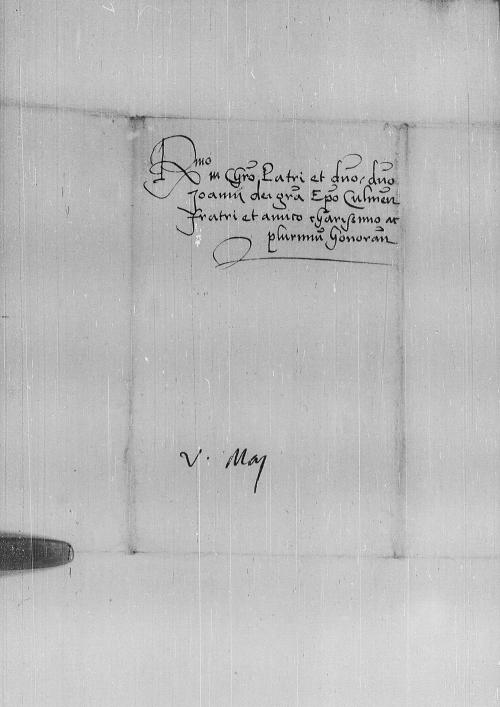 Rmo
in Chro Patri et dno, dno
Joanni dei gra Epo Culmen
fratri et amico charissimo ac
plurimu honoran
V. Maj